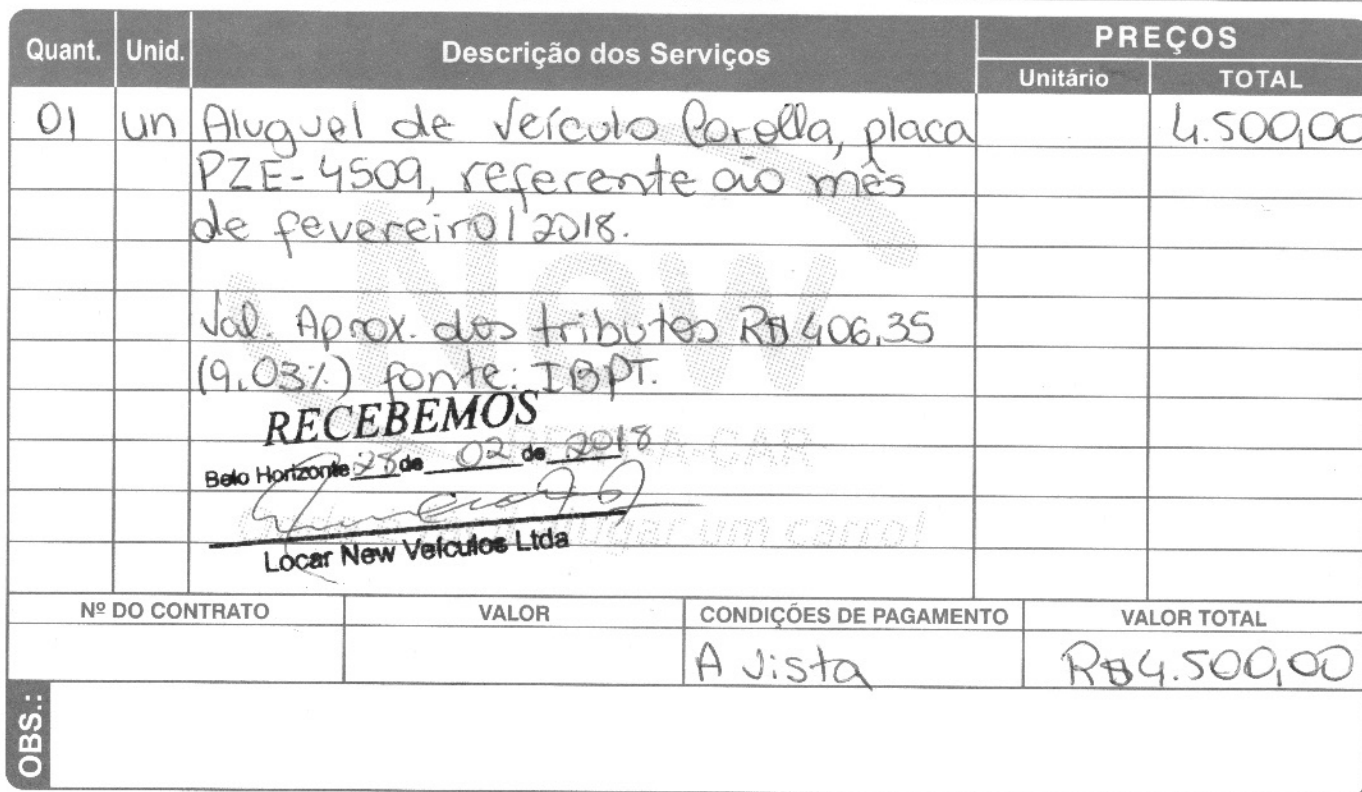 Quant. Unid. Descrição dos Serviços PREÇOS
Unitário TOTAL
01 un Aluguel de Veículo Corolla, placa 4.500,00
PZE-4509, referente ao mês
de fevereiro/2018.
Val. Aprox. dos tributos R$ 406,35
(9,03%) fonte: IBPT.
RECEBEMOS
Belo Horizonte 28 de 02 de 2018
Locar New Veículos Ltda
Nº DO CONTRATO VALOR CONDIÇÕES DE PAGAMENTO VALOR TOTAL
A Vista R$4.500,00
OBS.: